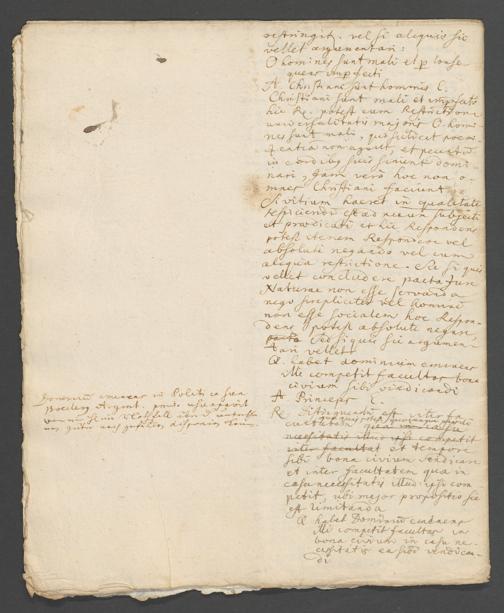 restringit. vel si aliquis sic
vellet argumentari:
O homines sunt mali et p conse
quens imperfecti
A. Christiani sunt homines E.
Christiani sunt mali et imperfecti
hic R. potest cum Restrictione
universalitatis majoris O homi-
nes sunt mali, qui scilicet poeni-
tentia non agunt, et peccatum
in cordibus suis sinunt domi-
nari, jam vero hoc non o-
mnes Christiani faciunt.
Si vitium haeret in qualitate
respiciendum est ad nexum subjecti
et praedicati et hic Respondens
potest item Respondere vel
absolute negando vel cum
aliqua restrictione. Ut si quis
vellet concludere pacta Jure
Naturae non esse servanda
nego simpliciter vel hominem
non esse socialem hoc Respon-
dens potest absolute negare
Sed si quis sic argumen-
tari vellet
Q. habet dominium eminens
illi competit facultas bona
civium sibi vindicandi
A. Princeps E.
R. Distinguendum est inter fa-
cultatem
necessitatis illud ipsi competit
inter facultatem et tempore
sibi bona civium vendicare
et inter facultatem qua in
casu necessitatis illud ipsi com
petit, ubi major propositio sic
est limitanda
Q habet Dominium eminens
illi competit facultas in
bona civium in casu ne-
cessitatis ea sibi vendican-
di
Dominium eminens in Politica
Boecleri Argent.